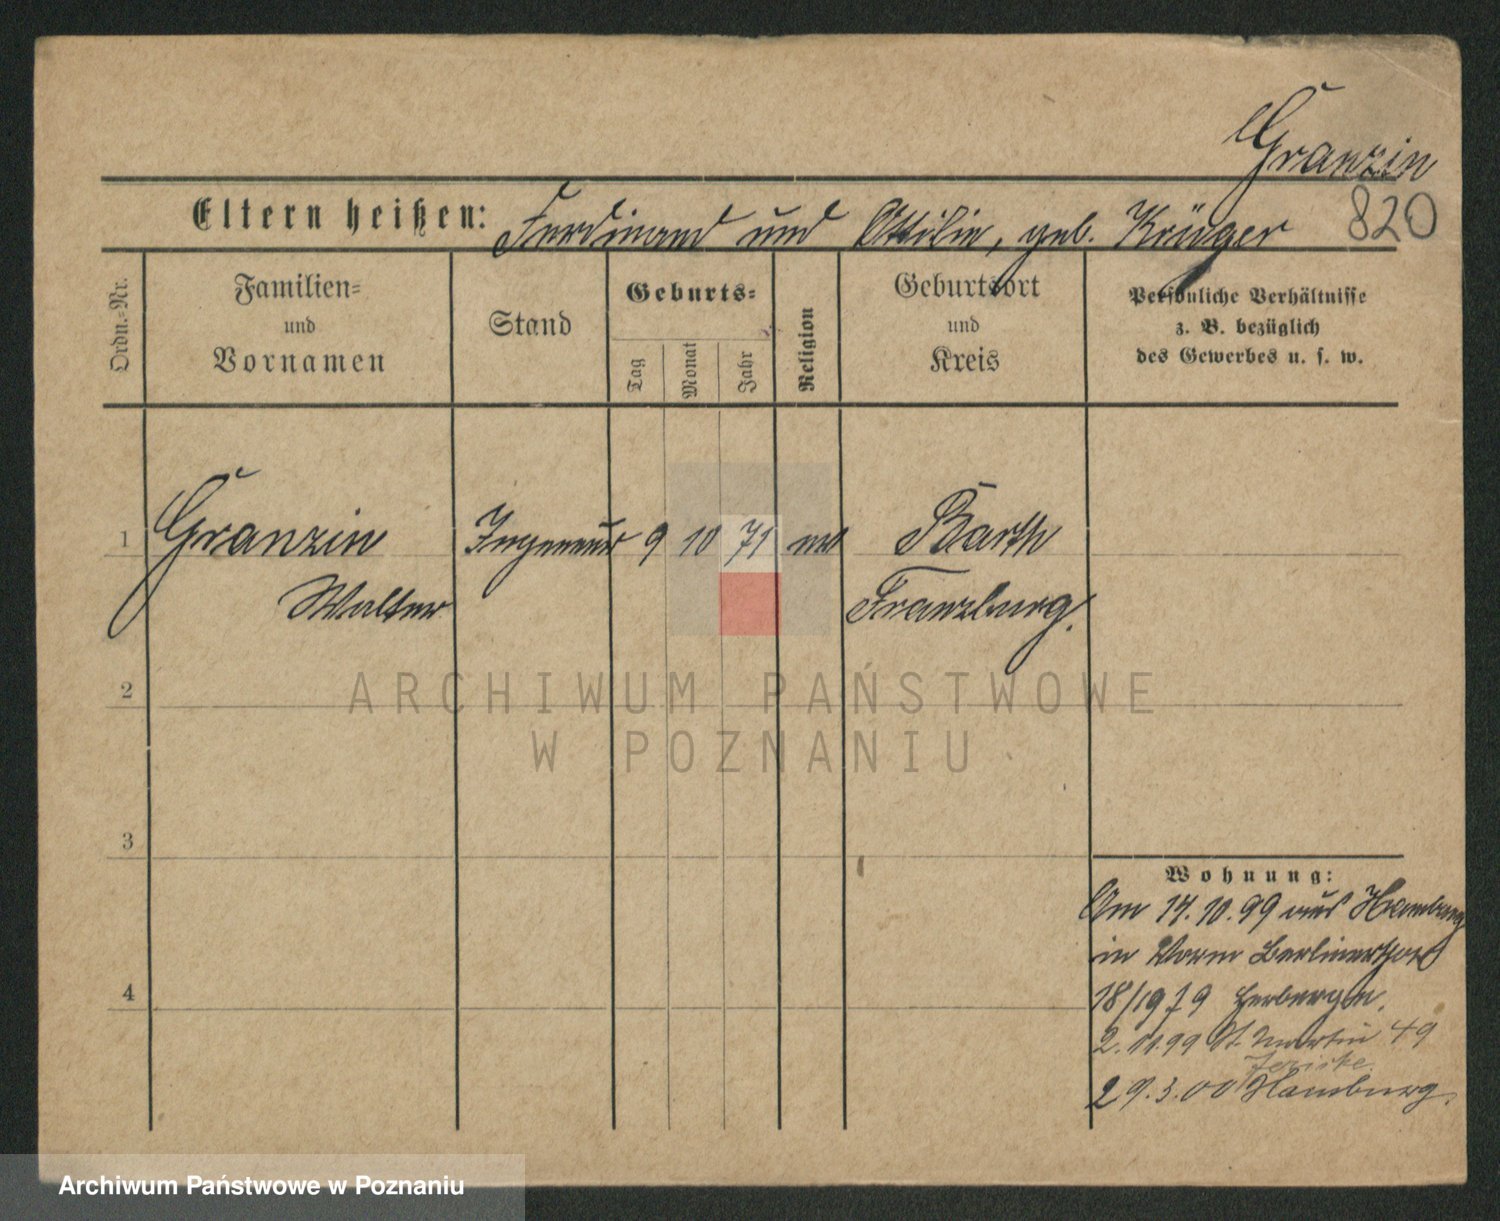 Granzin
Eltern heißen: Ferdinand und Ottilie, geb. Krüger 820
Ordn.-Nr.
Familien-
und
Vornamen
Stand
Geburts-
Tag
Monat
Jahr
Religion
Geburtsort
und
Kreis
Persönliche Verhältnisse
z. B. bezüglich
des Gewerbes u. s. w.
1 Granzin Ingenieur 9 10 71 ev Barth
Walter Franzburg.
2
ARCHIWUM PAŃSTWOWE
W POZNANIU
3
Wohnung:
Am 17.10.99 aus Hamburg
in Vorm Berlinerthor
18/19
4
2.11.99 St. Martin 49
29.3.00 Hamburg.
Archiwum Państwowe w Poznaniu